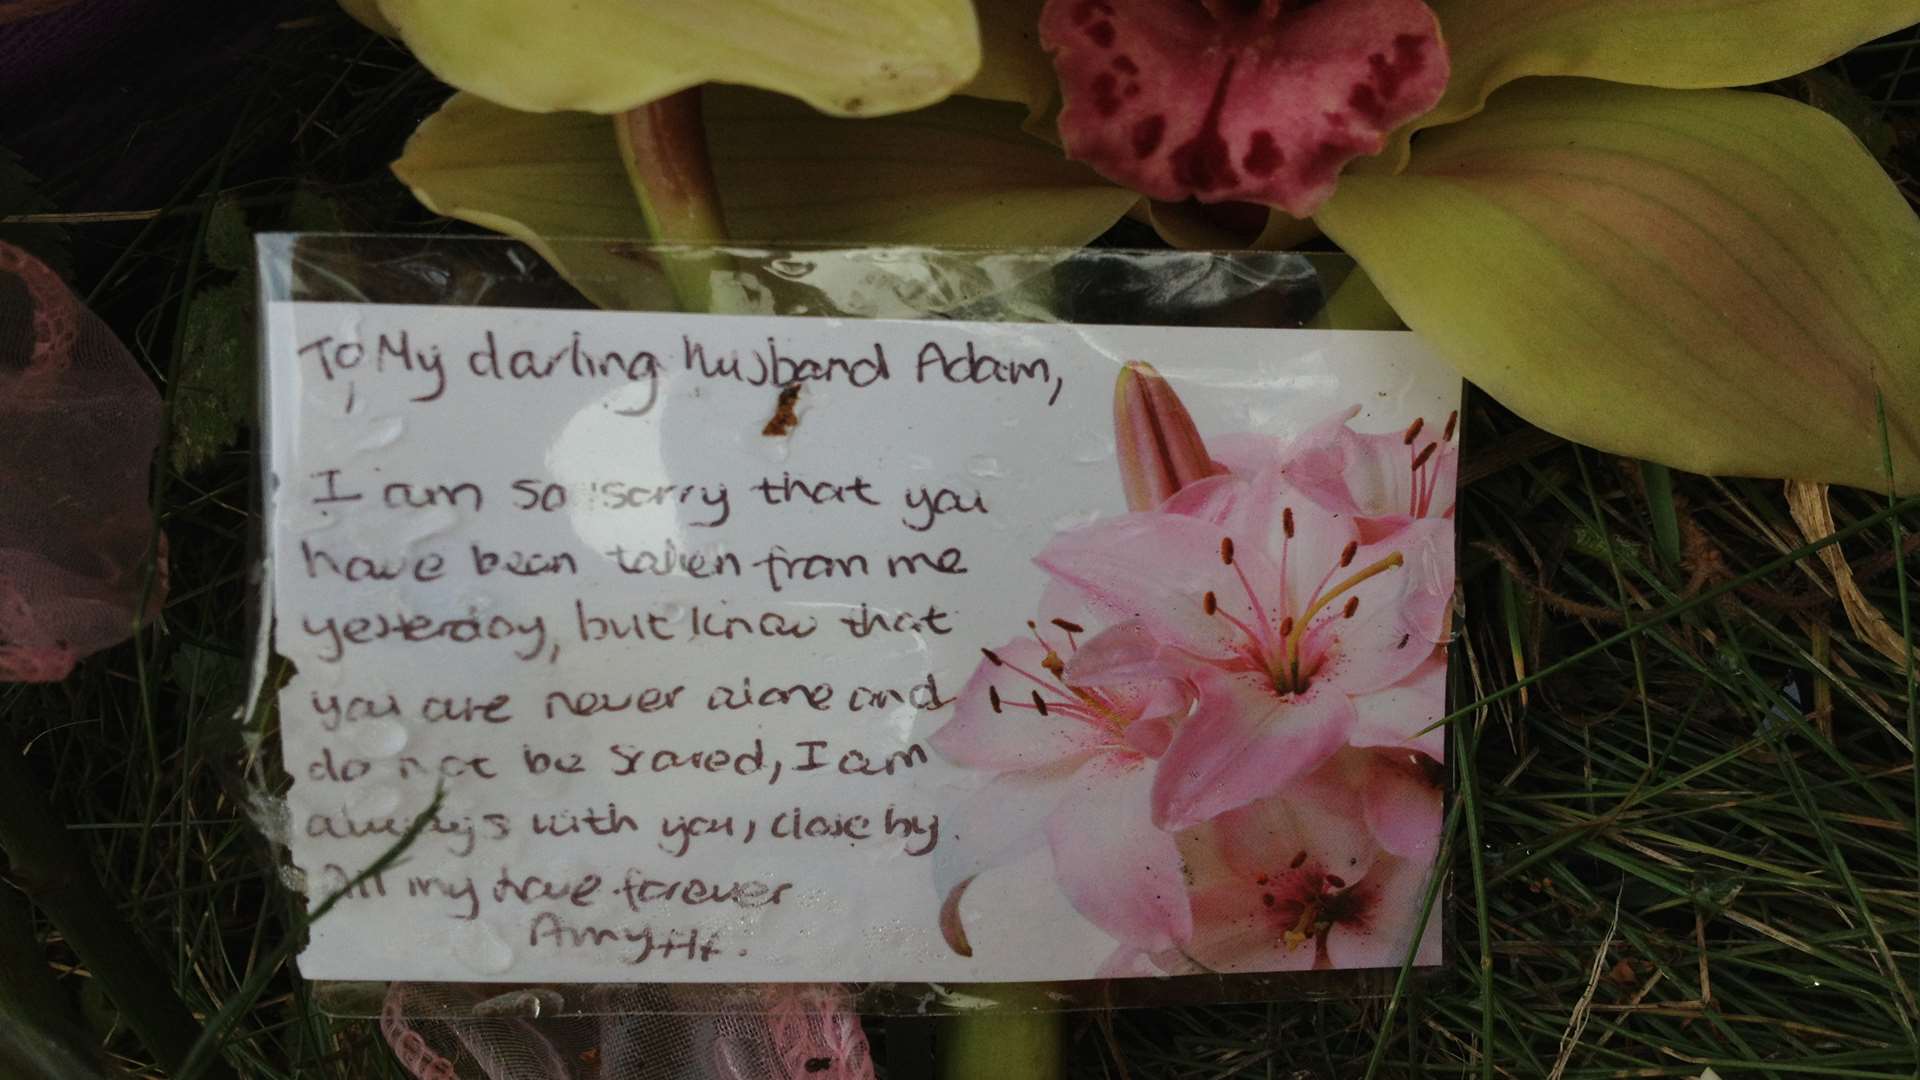 To, My darling husband Adam,
I am so sorry that you
have been taken from me
yesterday, but know that
you are never alone and
do not be scared, I am
always with you, close by.
All my love forever
Amy